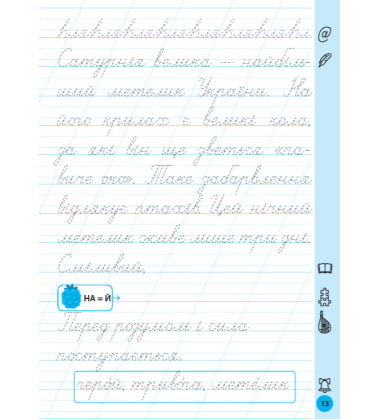 Сатурнія велика – найбіль-
ший метелик України. На
його крилах є великі кола,
за які він ще зветься «па-
виче око». Таке забарвлення
відлякує птахів. Цей нічний
метелик живе лише три дні.
НА = Й
Перед розумом і сила
поступається.
метелик
13